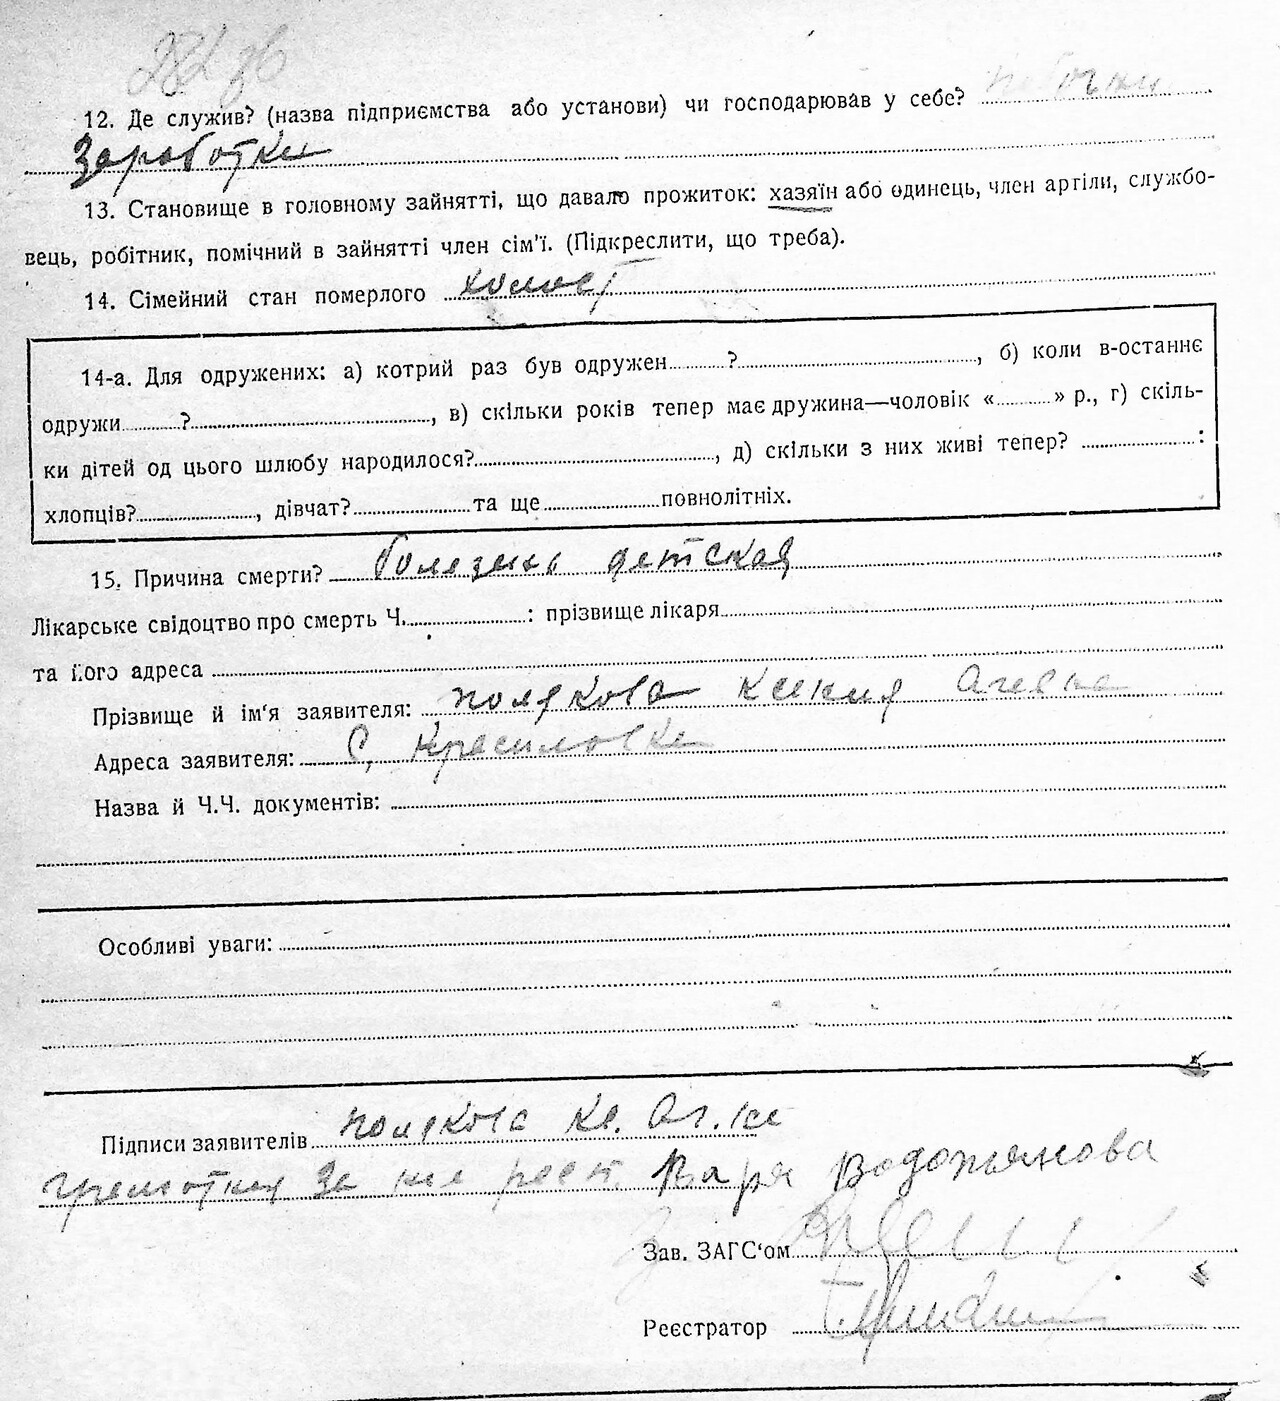 12. Де служив? (назва підприємства або установи) чи господарював у себе? побочни
Заработки
13. Становище в головному зайнятті, що давало прожиток: хазяїн або одинець, член артілі, службо-
вець, робітник, помічний в зайнятті член сім'ї. (Підкреслити, що треба).
14. Сімейний стан померлого холост
14-а. Для одружених: а) котрий раз був одружен ? , б) коли в-останнє
одружи ? , в) скільки років тепер має дружина—чоловік « » р., г) скіль-
ки дітей од цього шлюбу народилося? , д) скільки з них живі тепер? :
хлопців? , дівчат? та ще повнолітніх.
15. Причина смерти? болезень детская
Лікарське свідоцтво про смерть Ч. : прізвище лікаря
та його адреса
Прізвище й ім'я заявителя: полякова
Адреса заявителя: С, Красиловка
Назва й Ч.Ч. документів:
Особливі уваги:
Підписи заявителів полякова Кс. Аг. не
грамотная За нее рост. Варя Водопьянова
Зав. ЗАГС'ом
Реєстратор